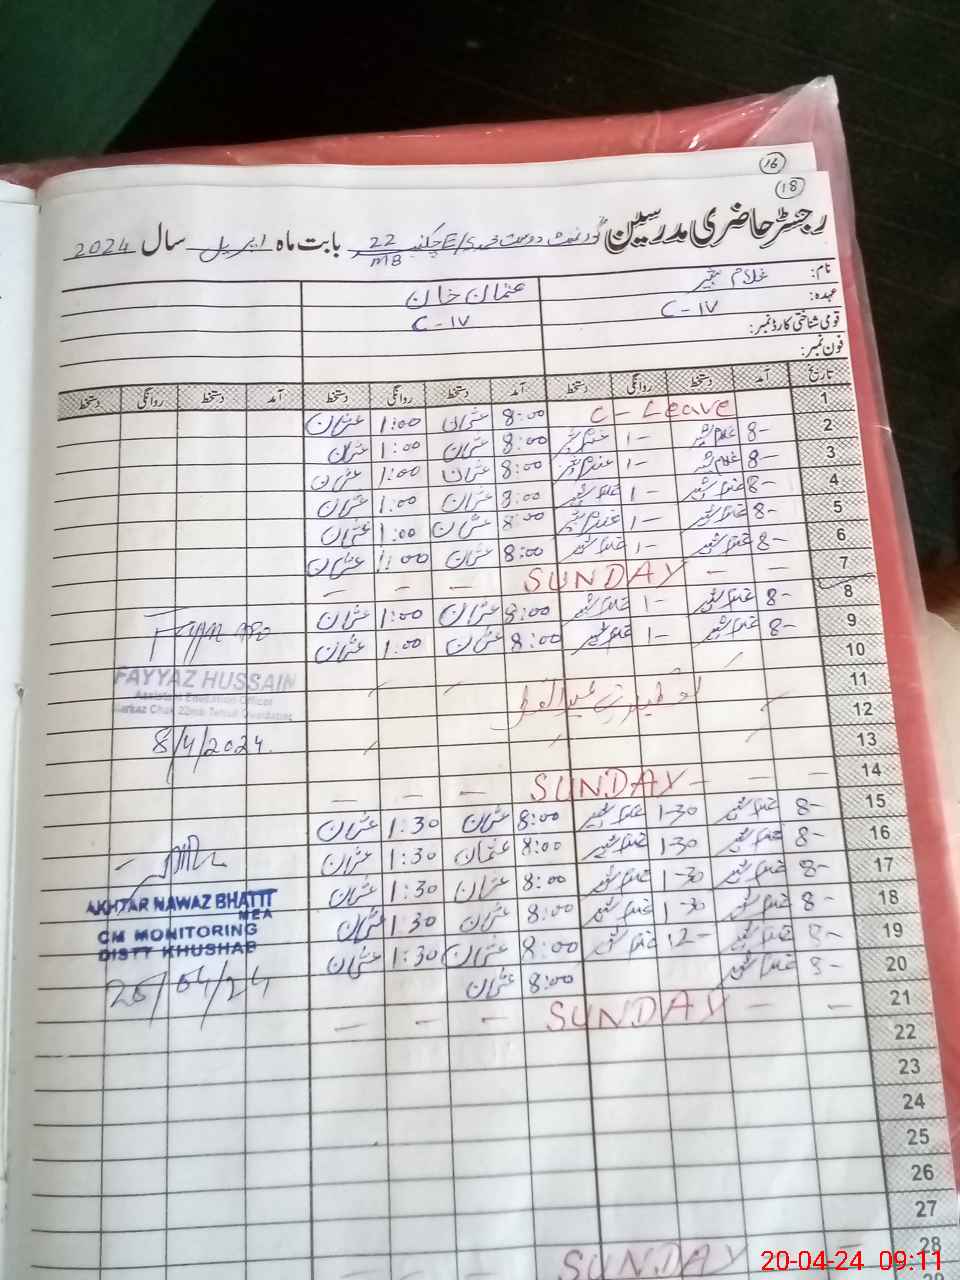 16
18
رجسٹر حاضری مدرسین گورنمنٹ 22 MB بابت ماہ اپریل سال 2024
نام: غلام شبیر عثمان خان
عہدہ: C-IV C-IV
قومی شناختی کارڈ نمبر:
فون نمبر:
تاریخ آمد دستخط روانگی دستخط آمد دستخط روانگی دستخط آمد دستخط روانگی دستخط
1 C-Leave 8:00 عثمان 1:00 عثمان
2 8- غلام شبیر 1- غلام شبیر 8:00 عثمان 1:00 عثمان
3 8- غلام شبیر 1- غلام شبیر 8:00 عثمان 1:00 عثمان
4 8- غلام شبیر 1- غلام شبیر 8:00 عثمان 1:00 عثمان
5 8- غلام شبیر 1- غلام شبیر 8:00 عثمان 1:00 عثمان
6 8- غلام شبیر 1- غلام شبیر 8:00 عثمان 1:00 عثمان
7 - - SUNDAY - - -
8 8- غلام شبیر 1- غلام شبیر 8:00 عثمان 1:00 عثمان
9 8- غلام شبیر 1- غلام شبیر 8:00 عثمان 1:00 عثمان
10
11 عید الفطر
12
13
14 - - SUNDAY - - -
15 8- غلام شبیر 1-30 غلام شبیر 8:00 عثمان 1:30 عثمان
16 8- غلام شبیر 1-30 غلام شبیر 8:00 عثمان 1:30 عثمان
17 8- غلام شبیر 1-30 غلام شبیر 8:00 عثمان 1:30 عثمان
18 8- غلام شبیر 1-30 غلام شبیر 8:00 عثمان 1:30 عثمان
19 8- غلام شبیر 12- غلام شبیر 8:00 عثمان 1:30 عثمان
20 8- غلام شبیر 8:00 عثمان
21 - - SUNDAY - - -
22
23
24
25
26
27
28 - SUNDAY
FAYYAZ HUSSAIN
Assistant Education Officer
Markaz Chak 22mb Tehsil Quaidabad
8/4/2024.
AKHTAR NAWAZ BHATTI
MEA
CM MONITORING
DISTT KHUSHAB
20/04/24
20-04-24 09:11